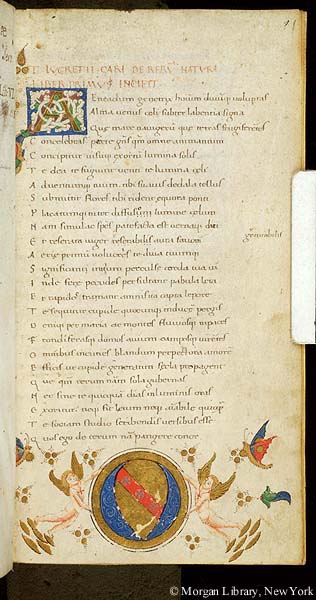 T LVCRETII CARI DE RERV NATVRA
LIBER PRIMVS INCIPIT
AEneadum genetrix hominū divūq voluptas
Alma venus celi subter labentia signa
Que mare navigerū que terras frugiferētes
Concelebras per te qm̄ gēs omne animantum
Concipitur visitq exortū lumina solis
Te dea te fugiunt venti te lumina celi
Adventumq tuum tibi suavis dedala tellus
Submittit flores tibi rident equora ponti
Placatumq nitet diffuso lumine celum
Nam simulac spēs patefacta est verna diei
Et reserata viget reserabilis aura favoni
genitabilis
Aerie primū volucres te diva tuumq
Significant initum perculse corda tua vi
Inde fere pecudes persultant pabula leta
Et rapidos tranant amnis ita capta lepore
Te sequitur cupide quocunq inducere pergis
Deniq per maria ac montes fluviosq rapaces
Frondiferasq domos avium camposq virētes
Omnibus incutiēs blandum per pectora amorē
Efficis ut cupide generatim secla propagent
Que qm̄ rerum natūrā sola gubernas
Nec sine te quicquā dias in luminis oras
Exoritur neq fit letum neq amabile quicq
Te sociam studio scribendis versibus esse
Quos ego de rerum natura pangere conor
© Morgan Library, New York